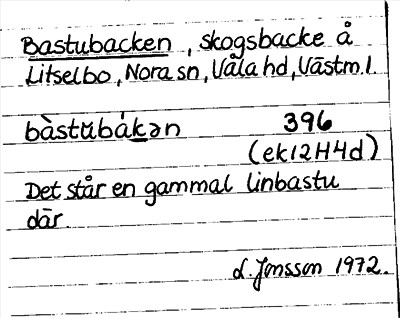 Bastubacken, skogsbacke å
Litselbo, Nora sn, Våla hd, Västm. l.
bàstŭbákən 396
(ek 12H4d)
Det står en gammal linbastu
där.
L. Jonsson 1972.